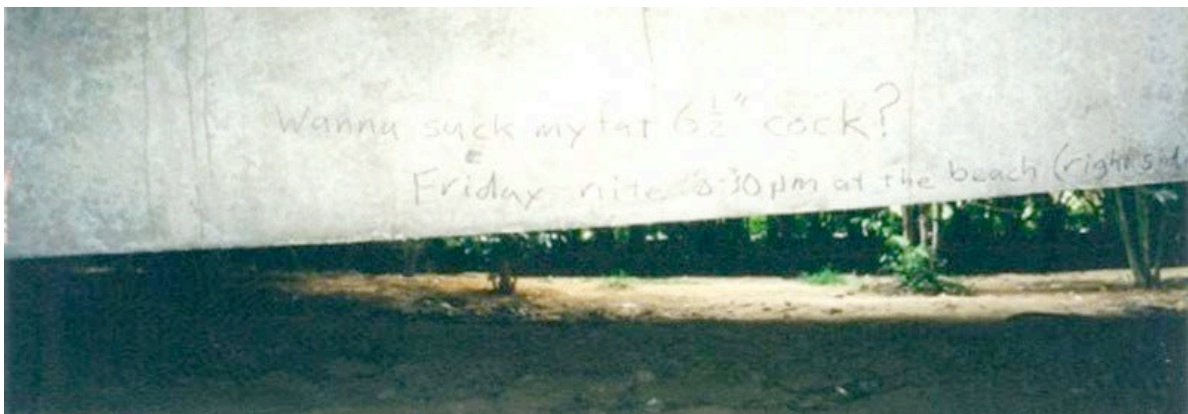 Wanna suck my fat 6½" cock?
Friday nite 8-30pm at the beach (right side